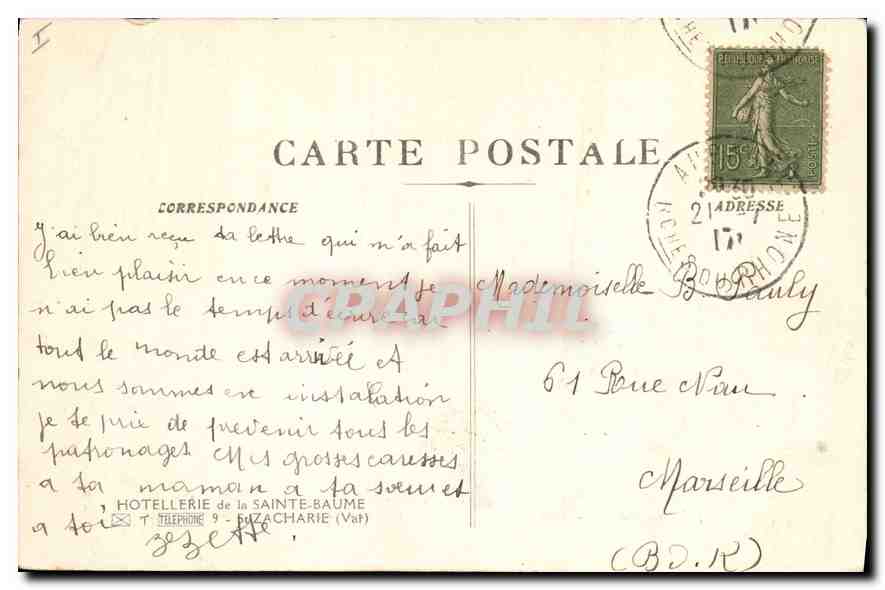 I
RÉPUBLIQUE FRANÇAISE
15c
POSTES
CARTE POSTALE
CORRESPONDANCE
ADRESSE
AU
21 -7
17
BCHES DU RHONE
j'ai bien reçu ta lettre qui m'a fait
bien plaisir en ce moment je
n'ai pas le temps d'écrire car
tout le monde est arrivée et
nous sommes en instalation
je te prie de prevenir tous les
patronages Mes grosses caresses
a ta maman a ta sœur et
a toi
zezette
Mademoiselle B. Pauly
61 Rue Nau
Marseille
(B.d.R)
HOTELLERIE de la SAINTE-BAUME
T TELEPHONE 9 - St ZACHARIE (Var)
CPAPHIL